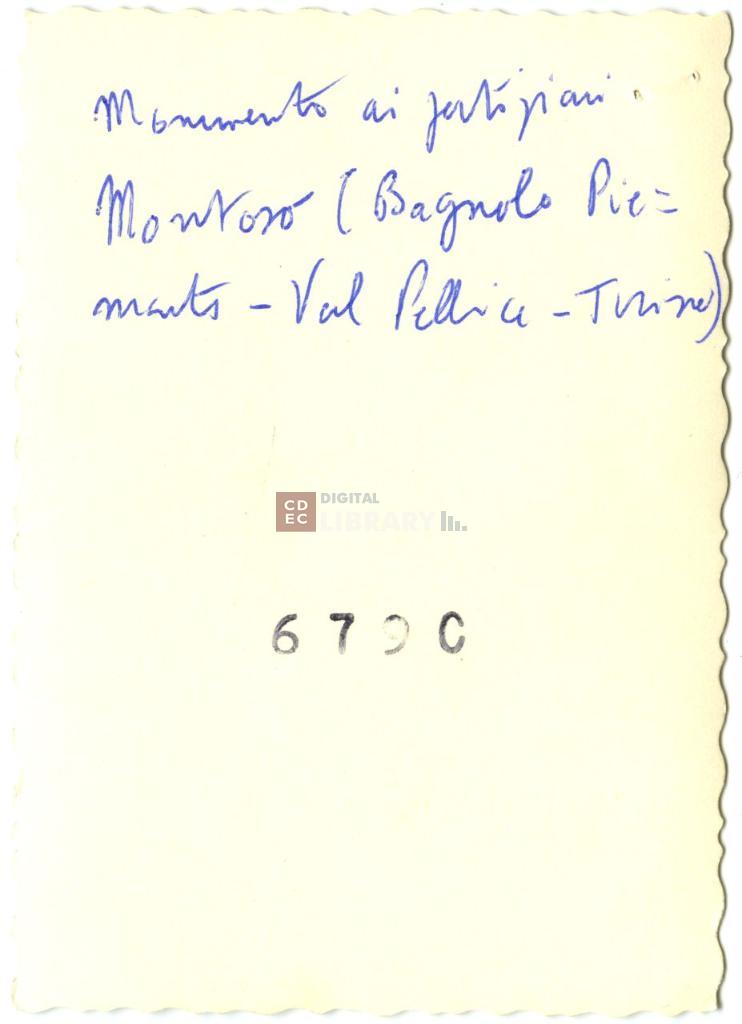 Monumento ai partigiani
Montoso (Bagnolo Pie=
monte - Val Pellice - Torino)
CD
EC
DIGITAL
LIBRARY
679C